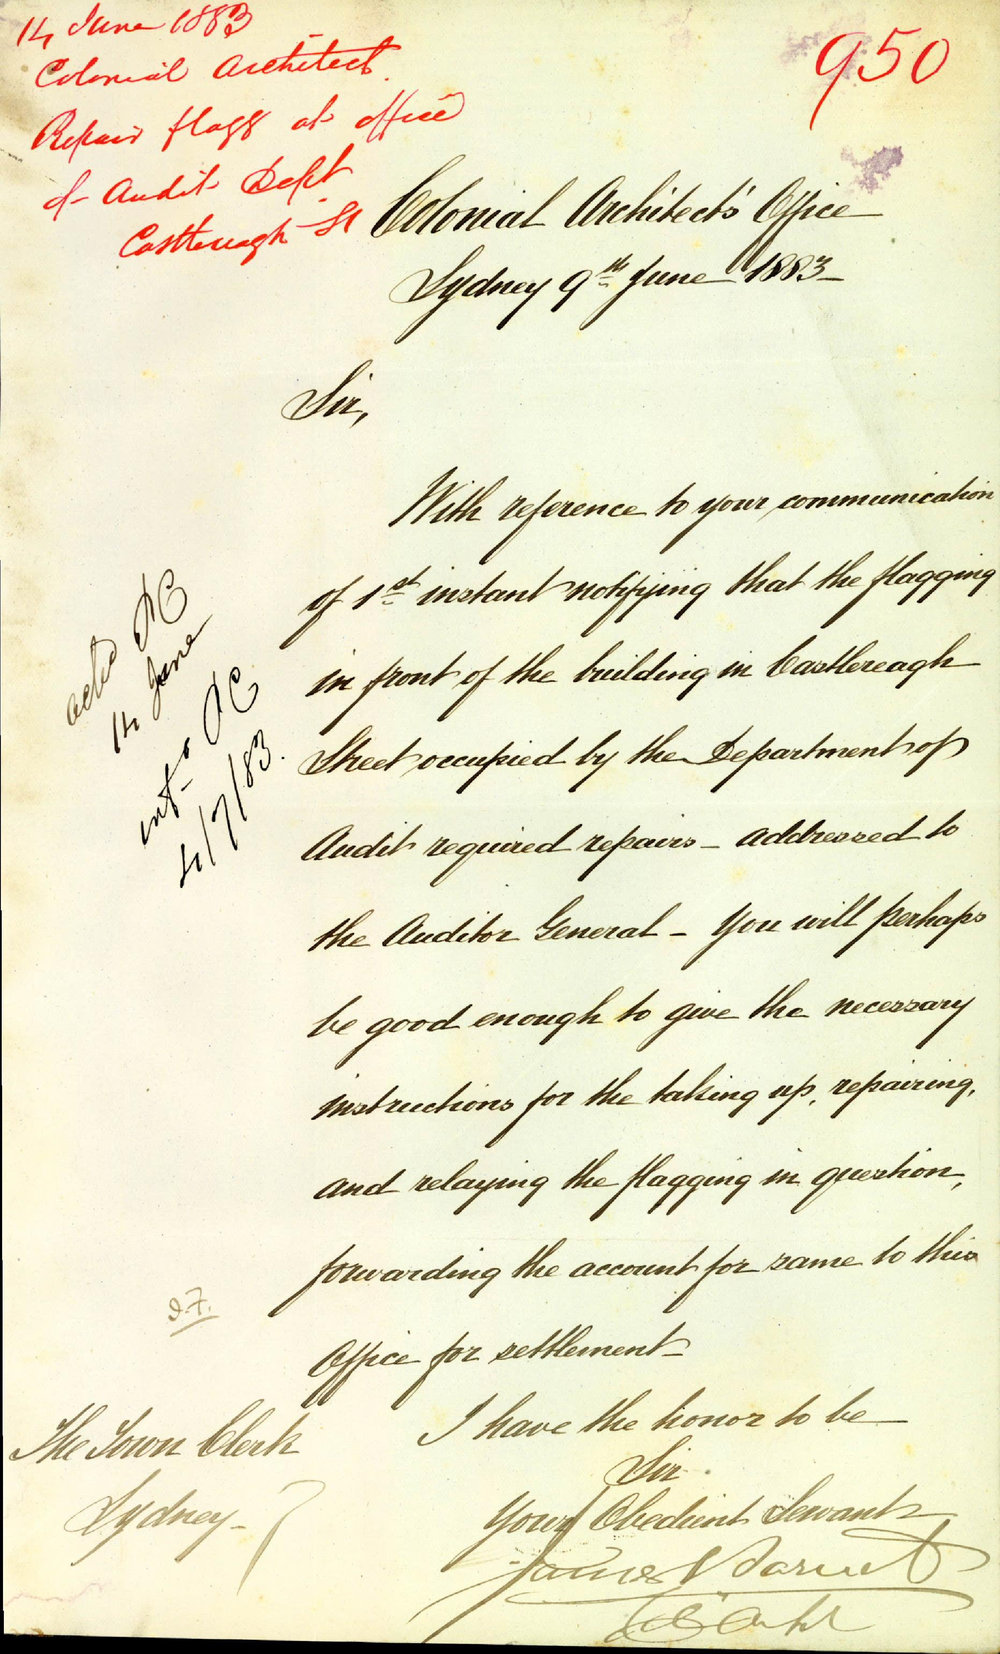 14 June 1883
Colonial Architect.
Repair flagg at office
of Audit Dept
Castlereagh St
950
Colonial Architect's Office
Sydney 9th June 1883
Sir,
With reference to your communication
of 1st instant notifying that the flagging
in front of the building in Castlereagh
Street occupied by the Department of
Audit required repairs – addressed to
the Auditor General – You will perhaps
be good enough to give the necessary
instructions for the taking up, repairing,
and relaying the flagging in question,
forwarding the account for same to this
Office for settlement
I have the honor to be
Sir
Your Obedient Servant
James Barnet
Col Archt
The Town Clerk
Sydney
14 June
4/7/83.